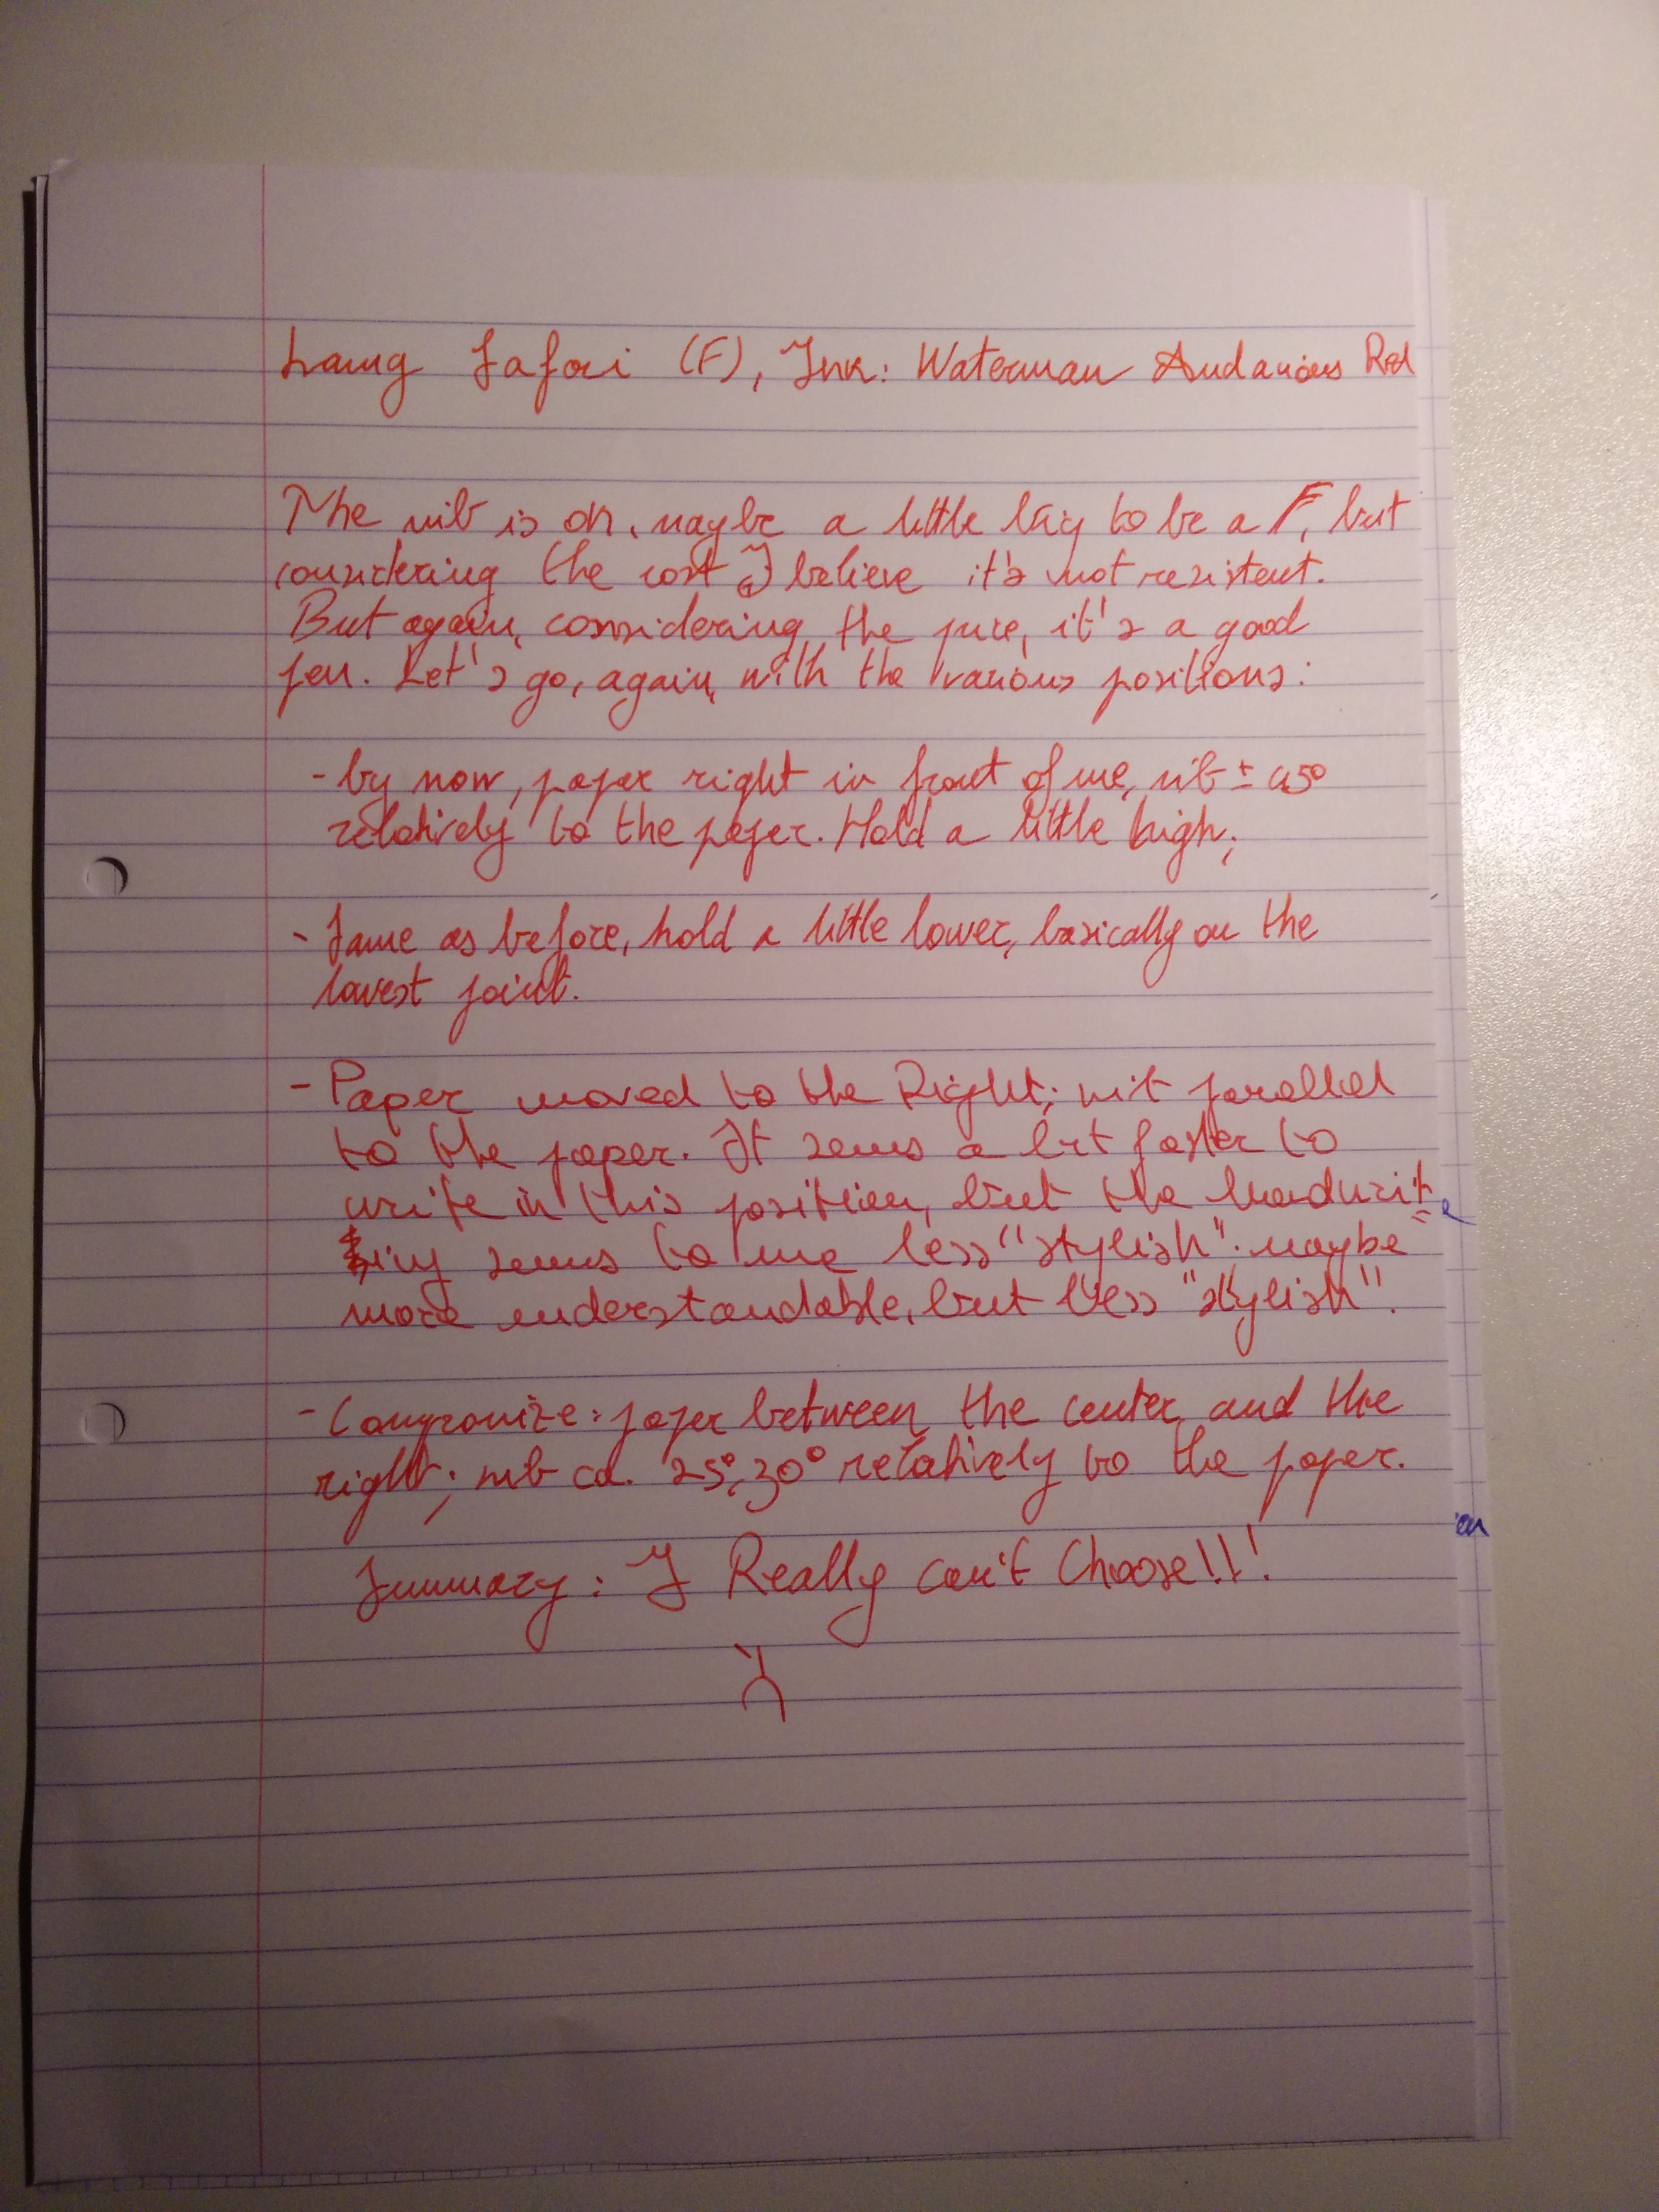 Lamy Safari (F), Ink: Waterman Audacious Red
The nib is ok, maybe a little big to be a F, but
considering the cost I believe it's not resistent.
But again, considering the price, it's a good
pen. Let's go, again, with the various positions:
- by now, paper right in front of me, nib ± 45°
relatively to the paper. Hold a little high;
- Same as before, hold a little lower, basically on the
lowest point.
- Paper moved to the Right; nib parallel
to the paper. It sems a bit faster to
write in this position, but the handwrit=
ing sems to me less "stylish". maybe
more understandable, but less "stylish".
- Compromize: paper between the center and the
right; nib ca. 25°,30° relatively to the paper.
Summary: I Really can't Choose!!!